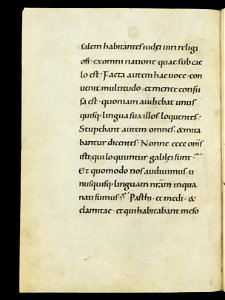 salem habitantes iudei uiri religi
osi · ex omni natione quae sub cae
lo est · Facta autem hac uoce · con
uenit multitudo · et mente confu
sa est · quoniam audiebat unus
quisq; lingua sua illos loquentes ·
Stupebant autem omnes · & mira
bantur dicentes · Nonne ecce oms
isti qui loquuntur galilei sunt
Et quomodo nos audiuimus u
nusquisq; linguam nrām in qua
nati sumus · Parthi · et medi · &
elamitae · et qui habitabant meso